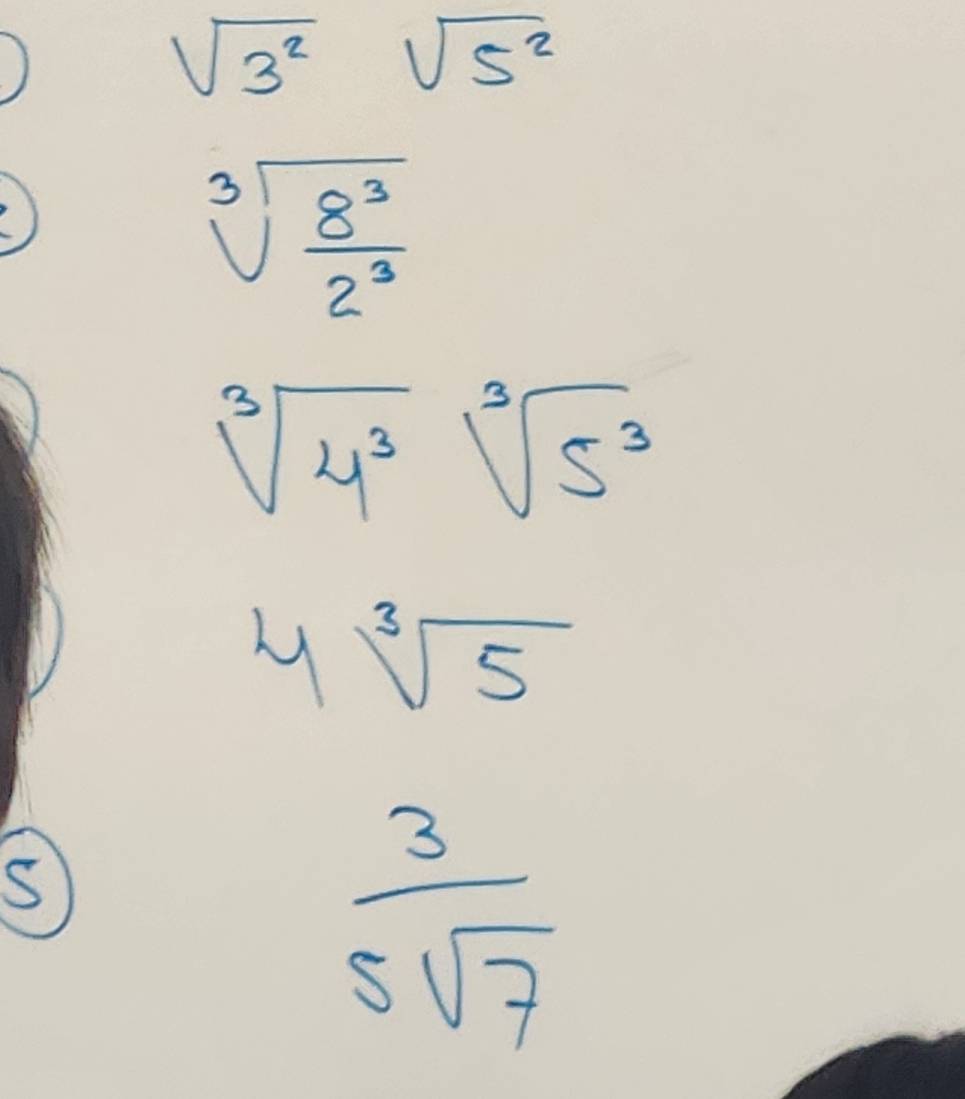 √3² √5²
∛(8³/2³)
∛4³ ∛5³
4 ∛5
⑤ 3/(5√7)